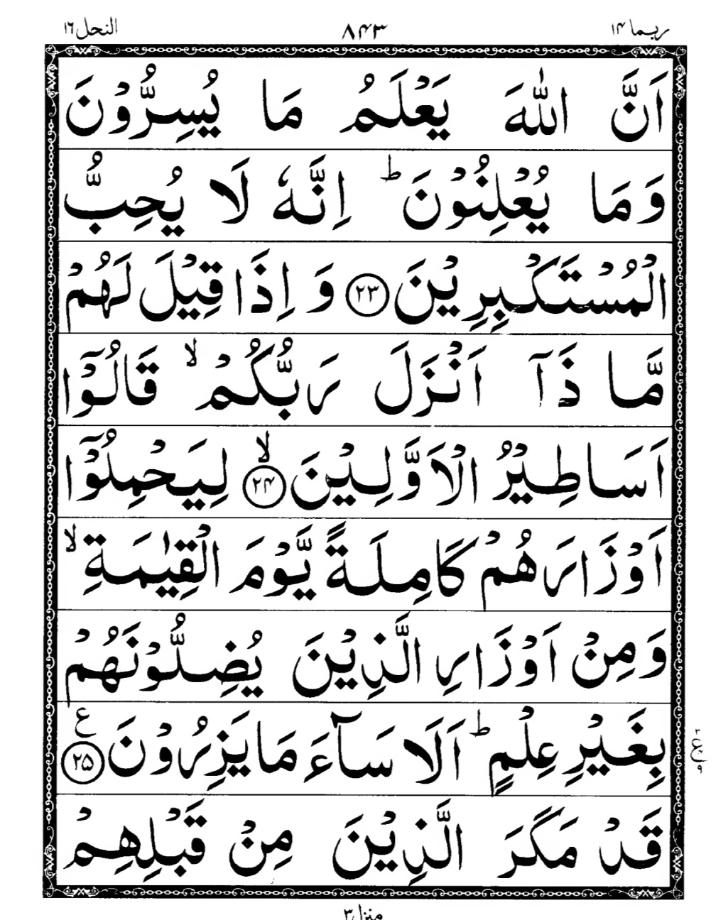 ربما ۱۴ ۸۴۳ النحل ۱۶
اَنَّ اللّٰهَ يَعْلَمُ مَا يُسِرُّوْنَ
وَمَا يُعْلِنُوْنَ ؕ اِنَّهٗ لَا يُحِبُّ
الْمُسْتَكْبِرِيْنَ ﴿۲۳﴾ وَ اِذَا قِيْلَ لَهُمْ
مَّا ذَآ اَنْزَلَ رَبُّكُمْ ۙ قَالُوْٓا
اَسَاطِيْرُ الْاَوَّلِيْنَ ﴿۲۴﴾ ۙ لِيَحْمِلُوْٓا
اَوْزَارَهُمْ كَامِلَةً يَّوْمَ الْقِيٰمَةِ ۙ
وَمِنْ اَوْزَارِ الَّذِيْنَ يُضِلُّوْنَهُمْ
بِغَيْرِ عِلْمٍ ؕ اَلَا سَآءَ مَا يَزِرُوْنَ ﴿۲۵﴾ ع
قَدْ مَكَرَ الَّذِيْنَ مِنْ قَبْلِهِمْ
منزل ۳